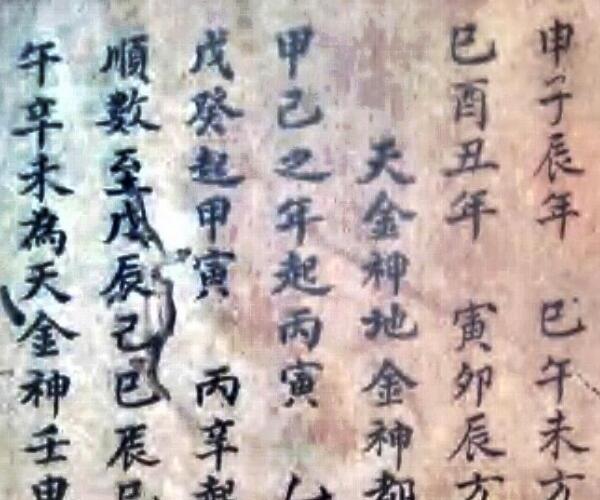 申子辰年 巳午未方
巳酉丑年 寅卯辰方
天金神地金神都
甲己之年起丙寅
戊癸起甲寅 丙辛起
順數至戊辰己巳辰巳
午辛未為天金神壬申